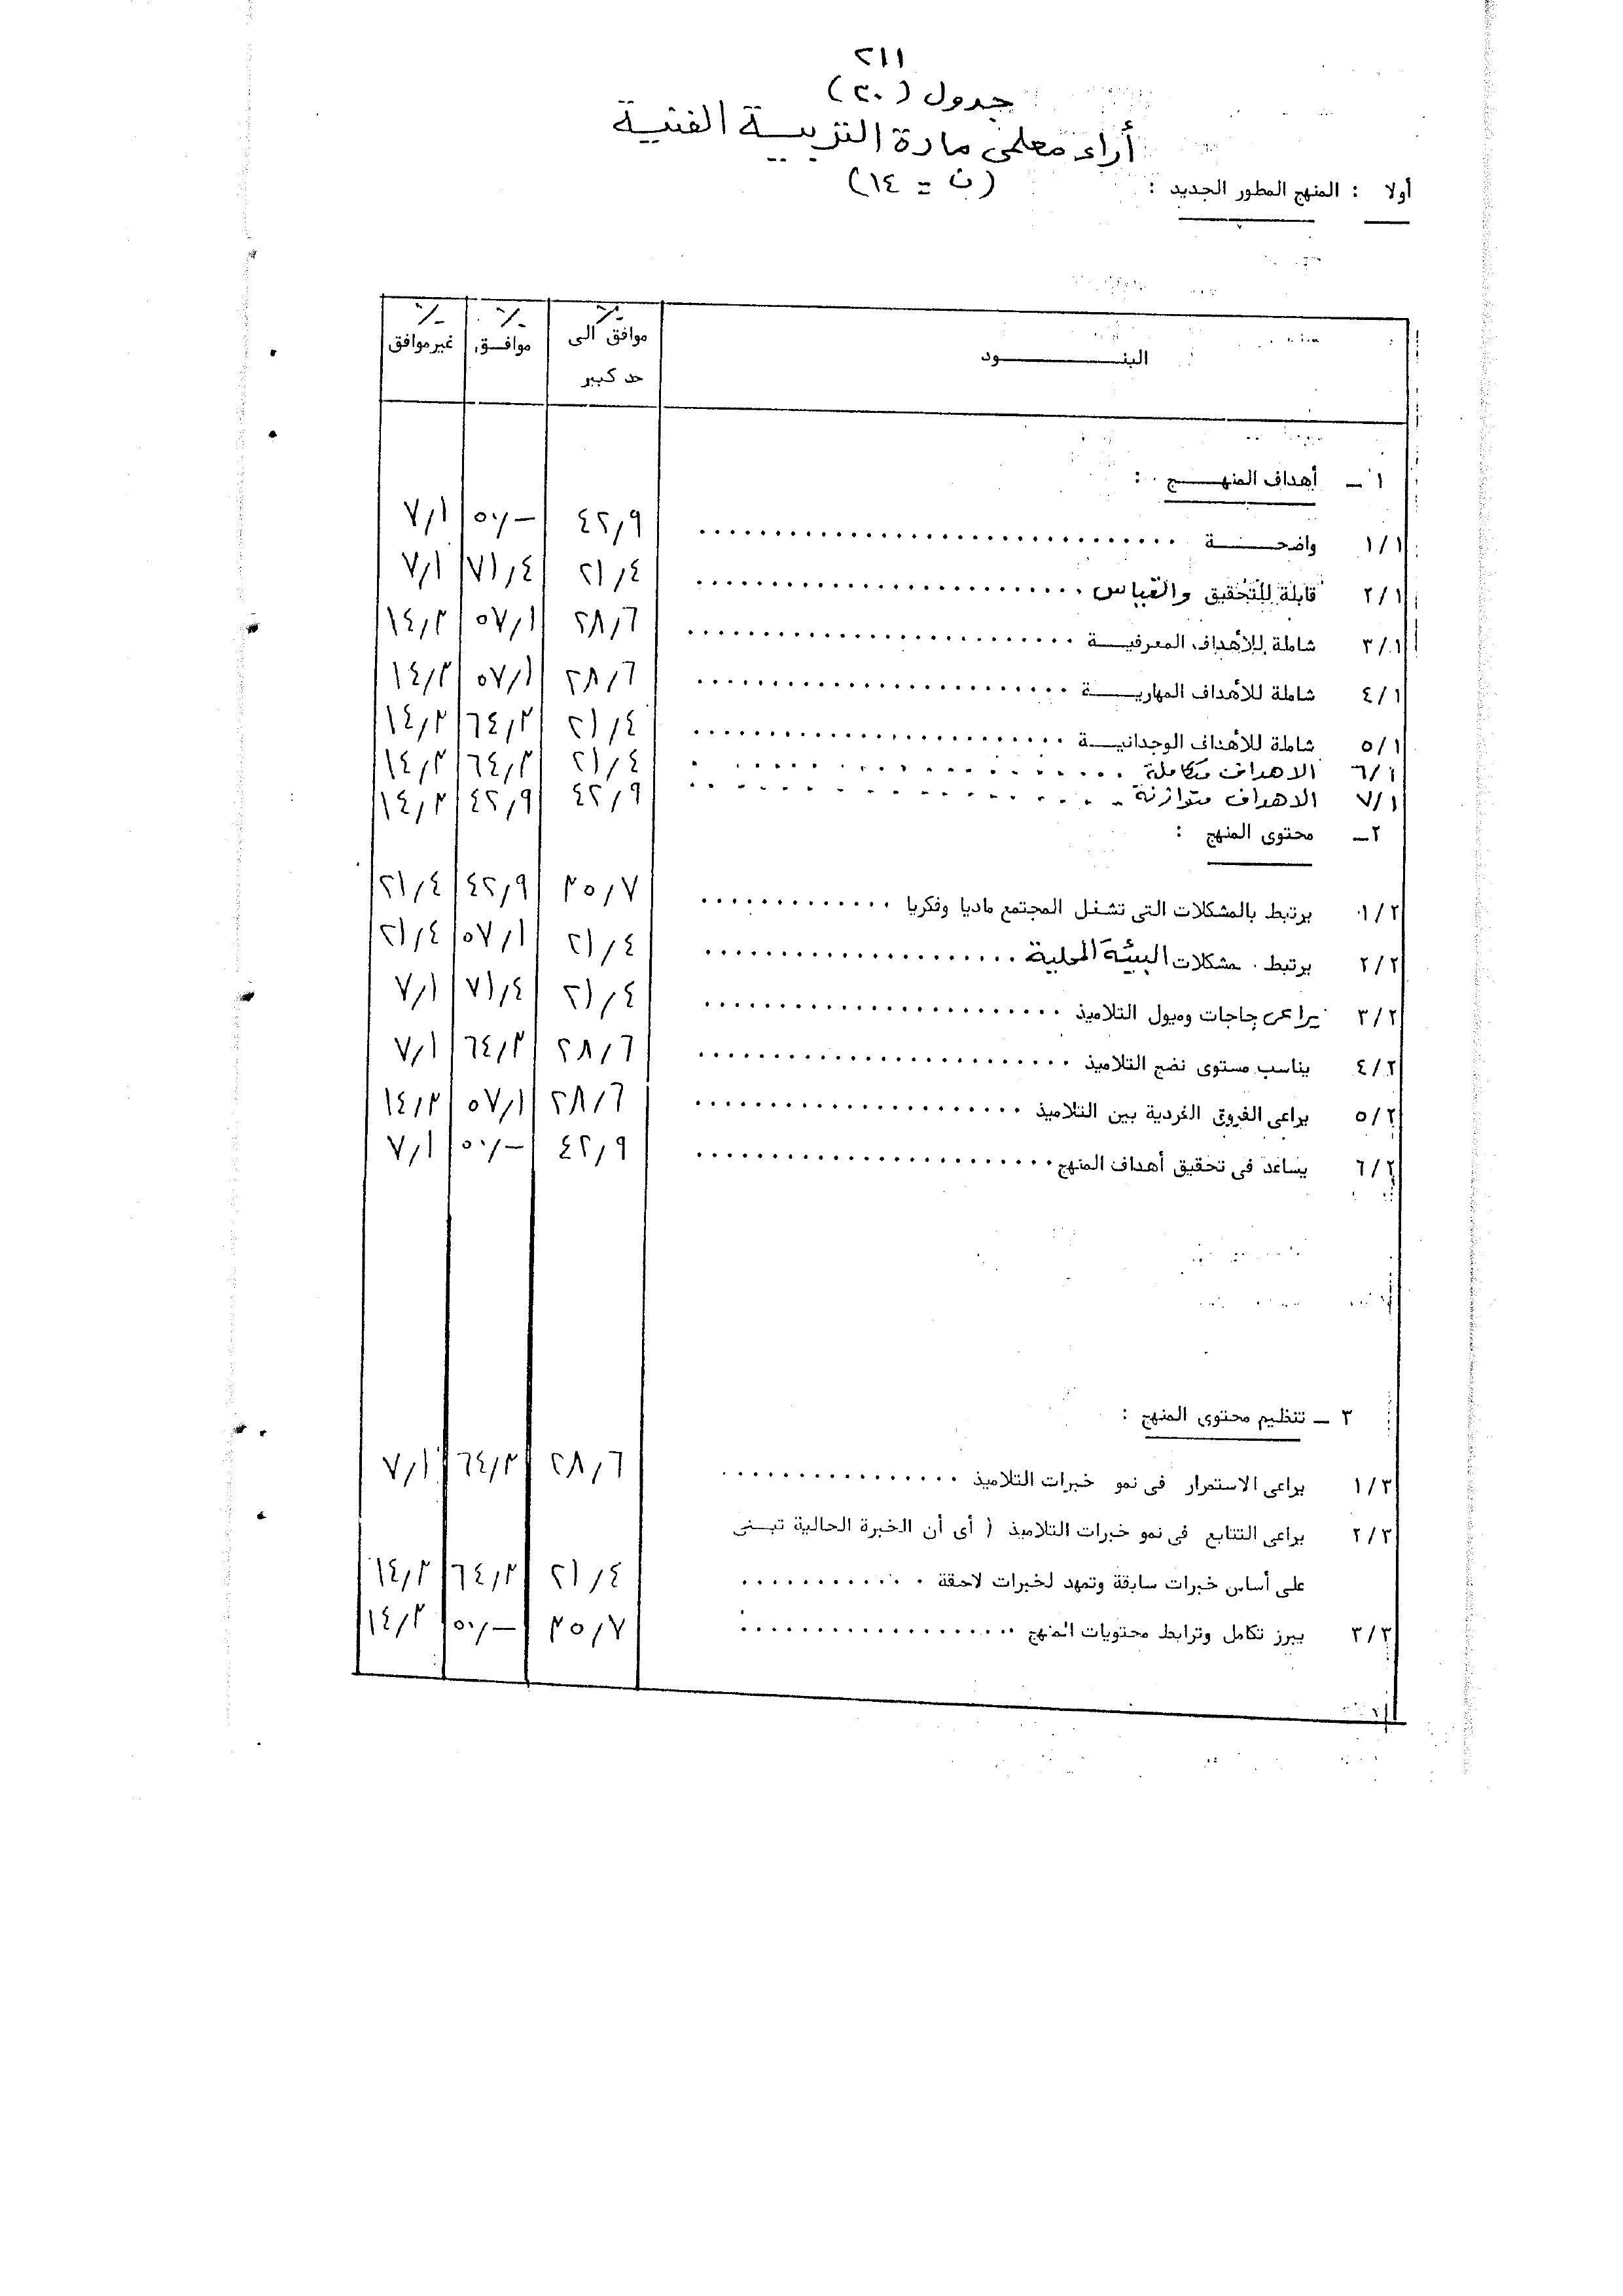 ٢١١
جدول (٣٠)
أراء معلمى مادة التربية الفنية
(ن = ١٤)
أولا : المنهج المطور الجديد :
البنود | ٪ موافق الى حد كبير | ٪ موافق | ٪ غير موافق
١ – أهداف المنهج :
١/١ واضحة .......... ٤٢,٩ | ٥٠,– | ٧,١
٢/١ قابلة للتحقيق والقياس .......... ٢١,٤ | ٧١,٤ | ٧,١
٣/١ شاملة للأهداف المعرفية .......... ٢٨,٦ | ٥٧,١ | ١٤,٣
٤/١ شاملة للأهداف المهارية .......... ٢٨,٦ | ٥٧,١ | ١٤,٣
٥/١ شاملة للأهداف الوجدانية .......... ٢١,٤ | ٦٤,٣ | ١٤,٣
٦/١ الاهداف متكاملة .......... ٢١,٤ | ٦٤,٣ | ١٤,٣
٧/١ الاهداف متوازنة .......... ٤٢,٩ | ٤٢,٩ | ١٤,٣
٢– محتوى المنهج :
١/٢ يرتبط بالمشكلات التى تشغل المجتمع ماديا وفكريا .......... ٣٥,٧ | ٤٢,٩ | ٢١,٤
٢/٢ يرتبط بمشكلات البيئة المحلية .......... ٢١,٤ | ٥٧,١ | ٢١,٤
٣/٢ يراعى حاجات وميول التلاميذ .......... ٢١,٤ | ٧١,٤ | ٧,١
٤/٢ يناسب مستوى نضج التلاميذ .......... ٢٨,٦ | ٦٤,٣ | ٧,١
٥/٢ يراعى الفروق الفردية بين التلاميذ .......... ٢٨,٦ | ٥٧,١ | ١٤,٣
٦/٢ يساعد فى تحقيق أهداف المنهج .......... ٤٢,٩ | ٥٠,– | ٧,١
٣ – تنظيم محتوى المنهج :
١/٣ يراعى الاستمرار فى نمو خبرات التلاميذ .......... ٢٨,٦ | ٦٤,٣ | ٧,١
٢/٣ يراعى التتابع فى نمو خبرات التلاميذ ( أى أن الخبرة الحالية تبنى
على أساس خبرات سابقة وتمهد لخبرات لاحقة .......... ٢١,٤ | ٦٤,٣ | ١٤,٣
٣/٣ يبرز تكامل وترابط محتويات المنهج .......... ٣٥,٧ | ٥٠,– | ١٤,٣